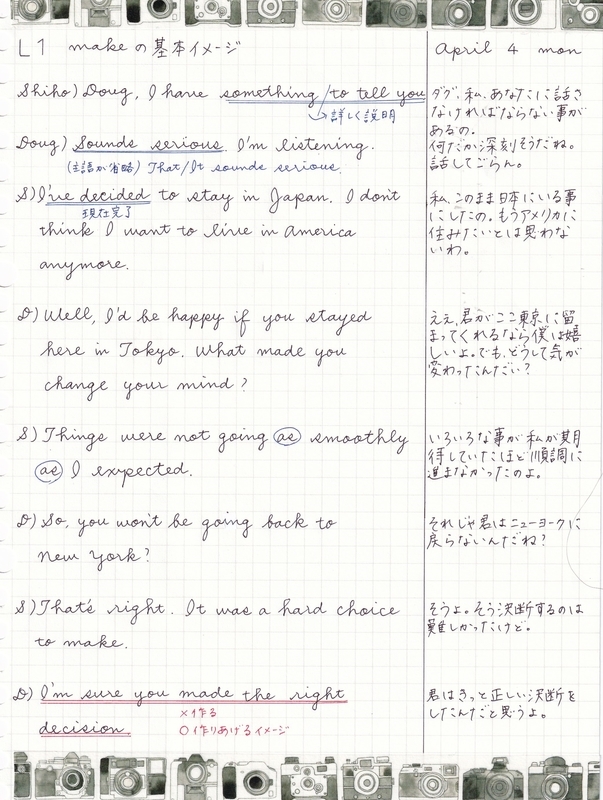 L1 makeの基本イメージ
April 4 mon
Shiho) Doug, I have something / to tell you
→詳しく説明
Doug) Sounds serious. I'm listening.
(主語が省略) That/It sounds serious.
S) I've decided to stay in Japan. I don't
現在完了
think I want to live in America
anymore.
D) Well, I'd be happy if you stayed
here in Tokyo. What made you
change your mind?
S) Things were not going as smoothly
as I expected.
D) So, you won't be going back to
New York?
S) That's right. It was a hard choice
to make.
D) I'm sure you made the right
decision.
×作る
○作りあげるイメージ
ダグ、私、あなたに話さ
なければならない事が
あるの。
何だか深刻そうだね。
話してごらん。
私、このまま日本にいる事
にしたの。もうアメリカに
住みたいとは思わな
いわ。
ええ、君がここ東京に留
まってくれるなら僕は嬉
しいよ。でも、どうして気が
変わったんだい?
いろいろな事が私が期
待していたほど順調に
進まなかったのよ。
それじゃ君はニューヨークに
戻らないんだね?
そうよ。そう決断するのは
難しかったけど。
君はきっと正しい決断を
したんだと思うよ。